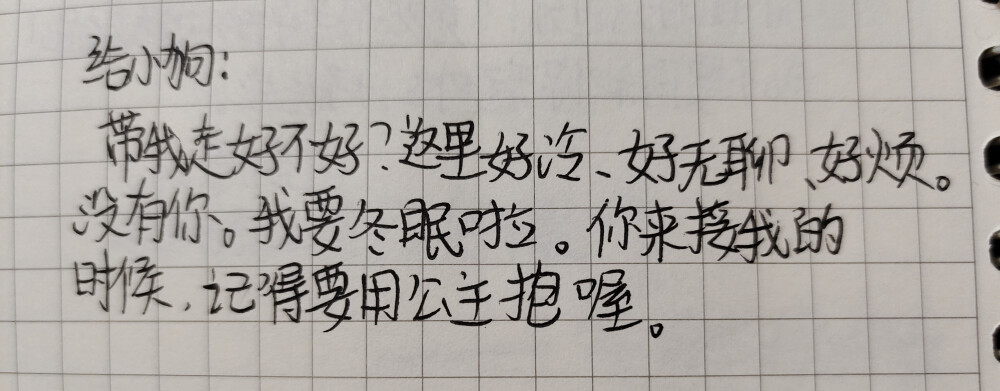 给小狗：
带我走好不好？这里好冷、好无聊、好烦。
没有你。我要冬眠啦。你来接我的
时候，记得要用公主抱喔。